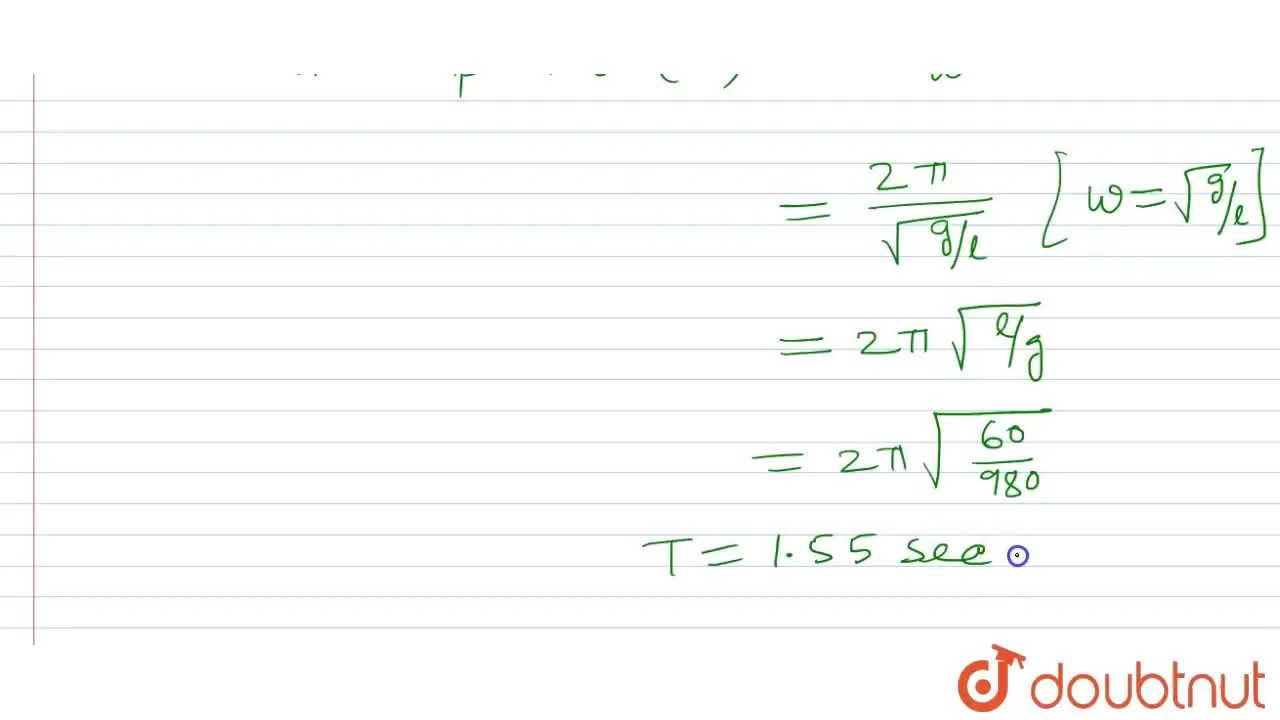 = 2π / √g/l [ω = √g/l]
= 2π √l/g
= 2π √60/980
T = 1.55 sec
doubtnut